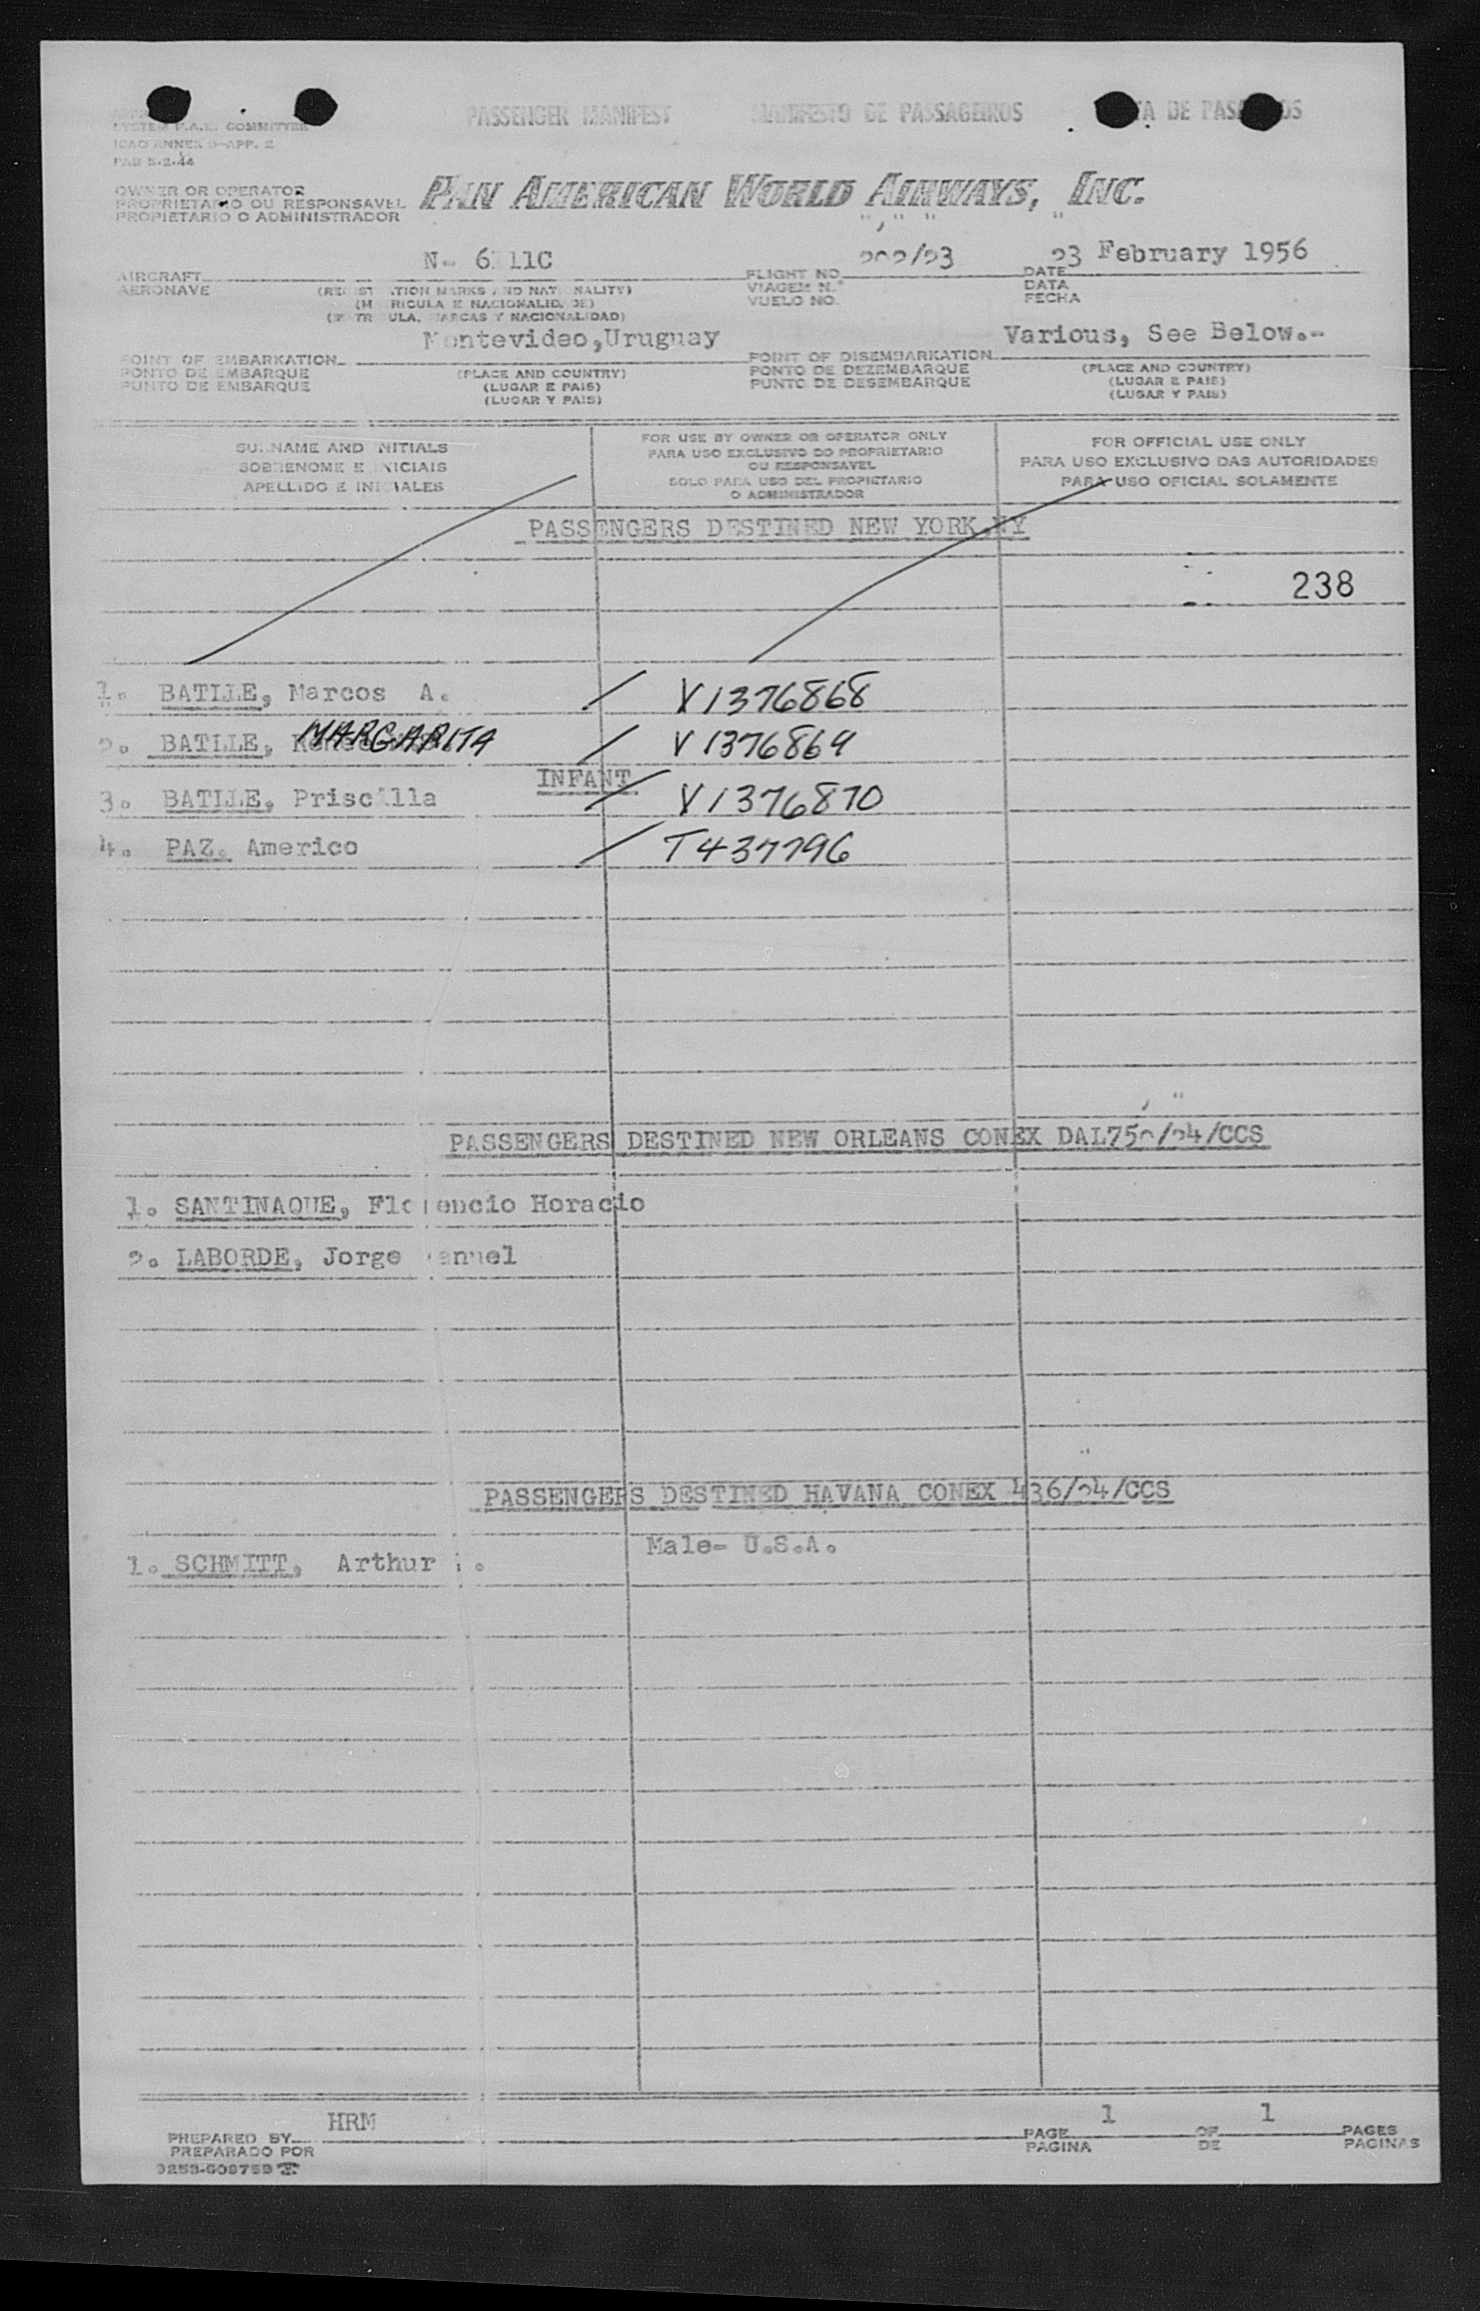 PASSENGER MANIFEST MANIFESTO DE PASSAGEIROS DE
SYSTEM F.A.L. COMMITTEE
ICAO ANNEX 9-APP. 2
PAB 5-2-44
OWNER OR OPERATOR
PROPRIETARIO OU RESPONSAVEL
PROPIETARIO O ADMINISTRADOR
PAN AMERICAN WORLD AIRWAYS, INC.
N- 11C 202/23 23 February 1956
AIRCRAFT FLIGHT NO. DATE
AERONAVE VIAGEM N.° DATA
VUELO NO. FECHA
Montevideo,Uruguay Various, See Below.-
POINT OF EMBARKATION POINT OF DISEMBARKATION
PONTO DE EMBARQUE (PLACE AND COUNTRY) PONTO DE DEZEMBARQUE (PLACE AND COUNTRY)
PUNTO DE EMBARQUE (LUGAR E PAIS) PUNTO DE DESEMBARQUE (LUGAR E PAIS)
(LUGAR Y PAIS) (LUGAR Y PAIS)
SURNAME AND INITIALS FOR USE BY OWNER OR OPERATOR ONLY FOR OFFICIAL USE ONLY
SOBRENOME E INICIAIS PARA USO EXCLUSIVO DO PROPRIETARIO PARA USO EXCLUSIVO DAS AUTORIDADES
OU RESPONSAVEL
APELLIDO E INICIALES SOLO PARA USO DEL PROPIETARIO PARA USO OFICIAL SOLAMENTE
O ADMINISTRADOR
PASSENGERS DESTINED NEW YORK.NY
238
1. BATLLE, Marcos A. / V1376868
2. BATLLE, MARGARITA / V1376869
INFANT
3. BATLLE, Priscilla / V1376870
4. PAZ. Americo / T437796
PASSENGERS DESTINED NEW ORLEANS CONEX DAL752/24/CCS
1. SANTINAQUE, Florencio Horacio
2. LABORDE, Jorge Manuel
PASSENGERS DESTINED HAVANA CONEX 436/24/CCS
Male- U.S.A.
1. SCHMITT, Arthur
HRM 1 1
PREPARED BY PAGE OF PAGES
PREPARADO POR PAGINA DE PAGINAS